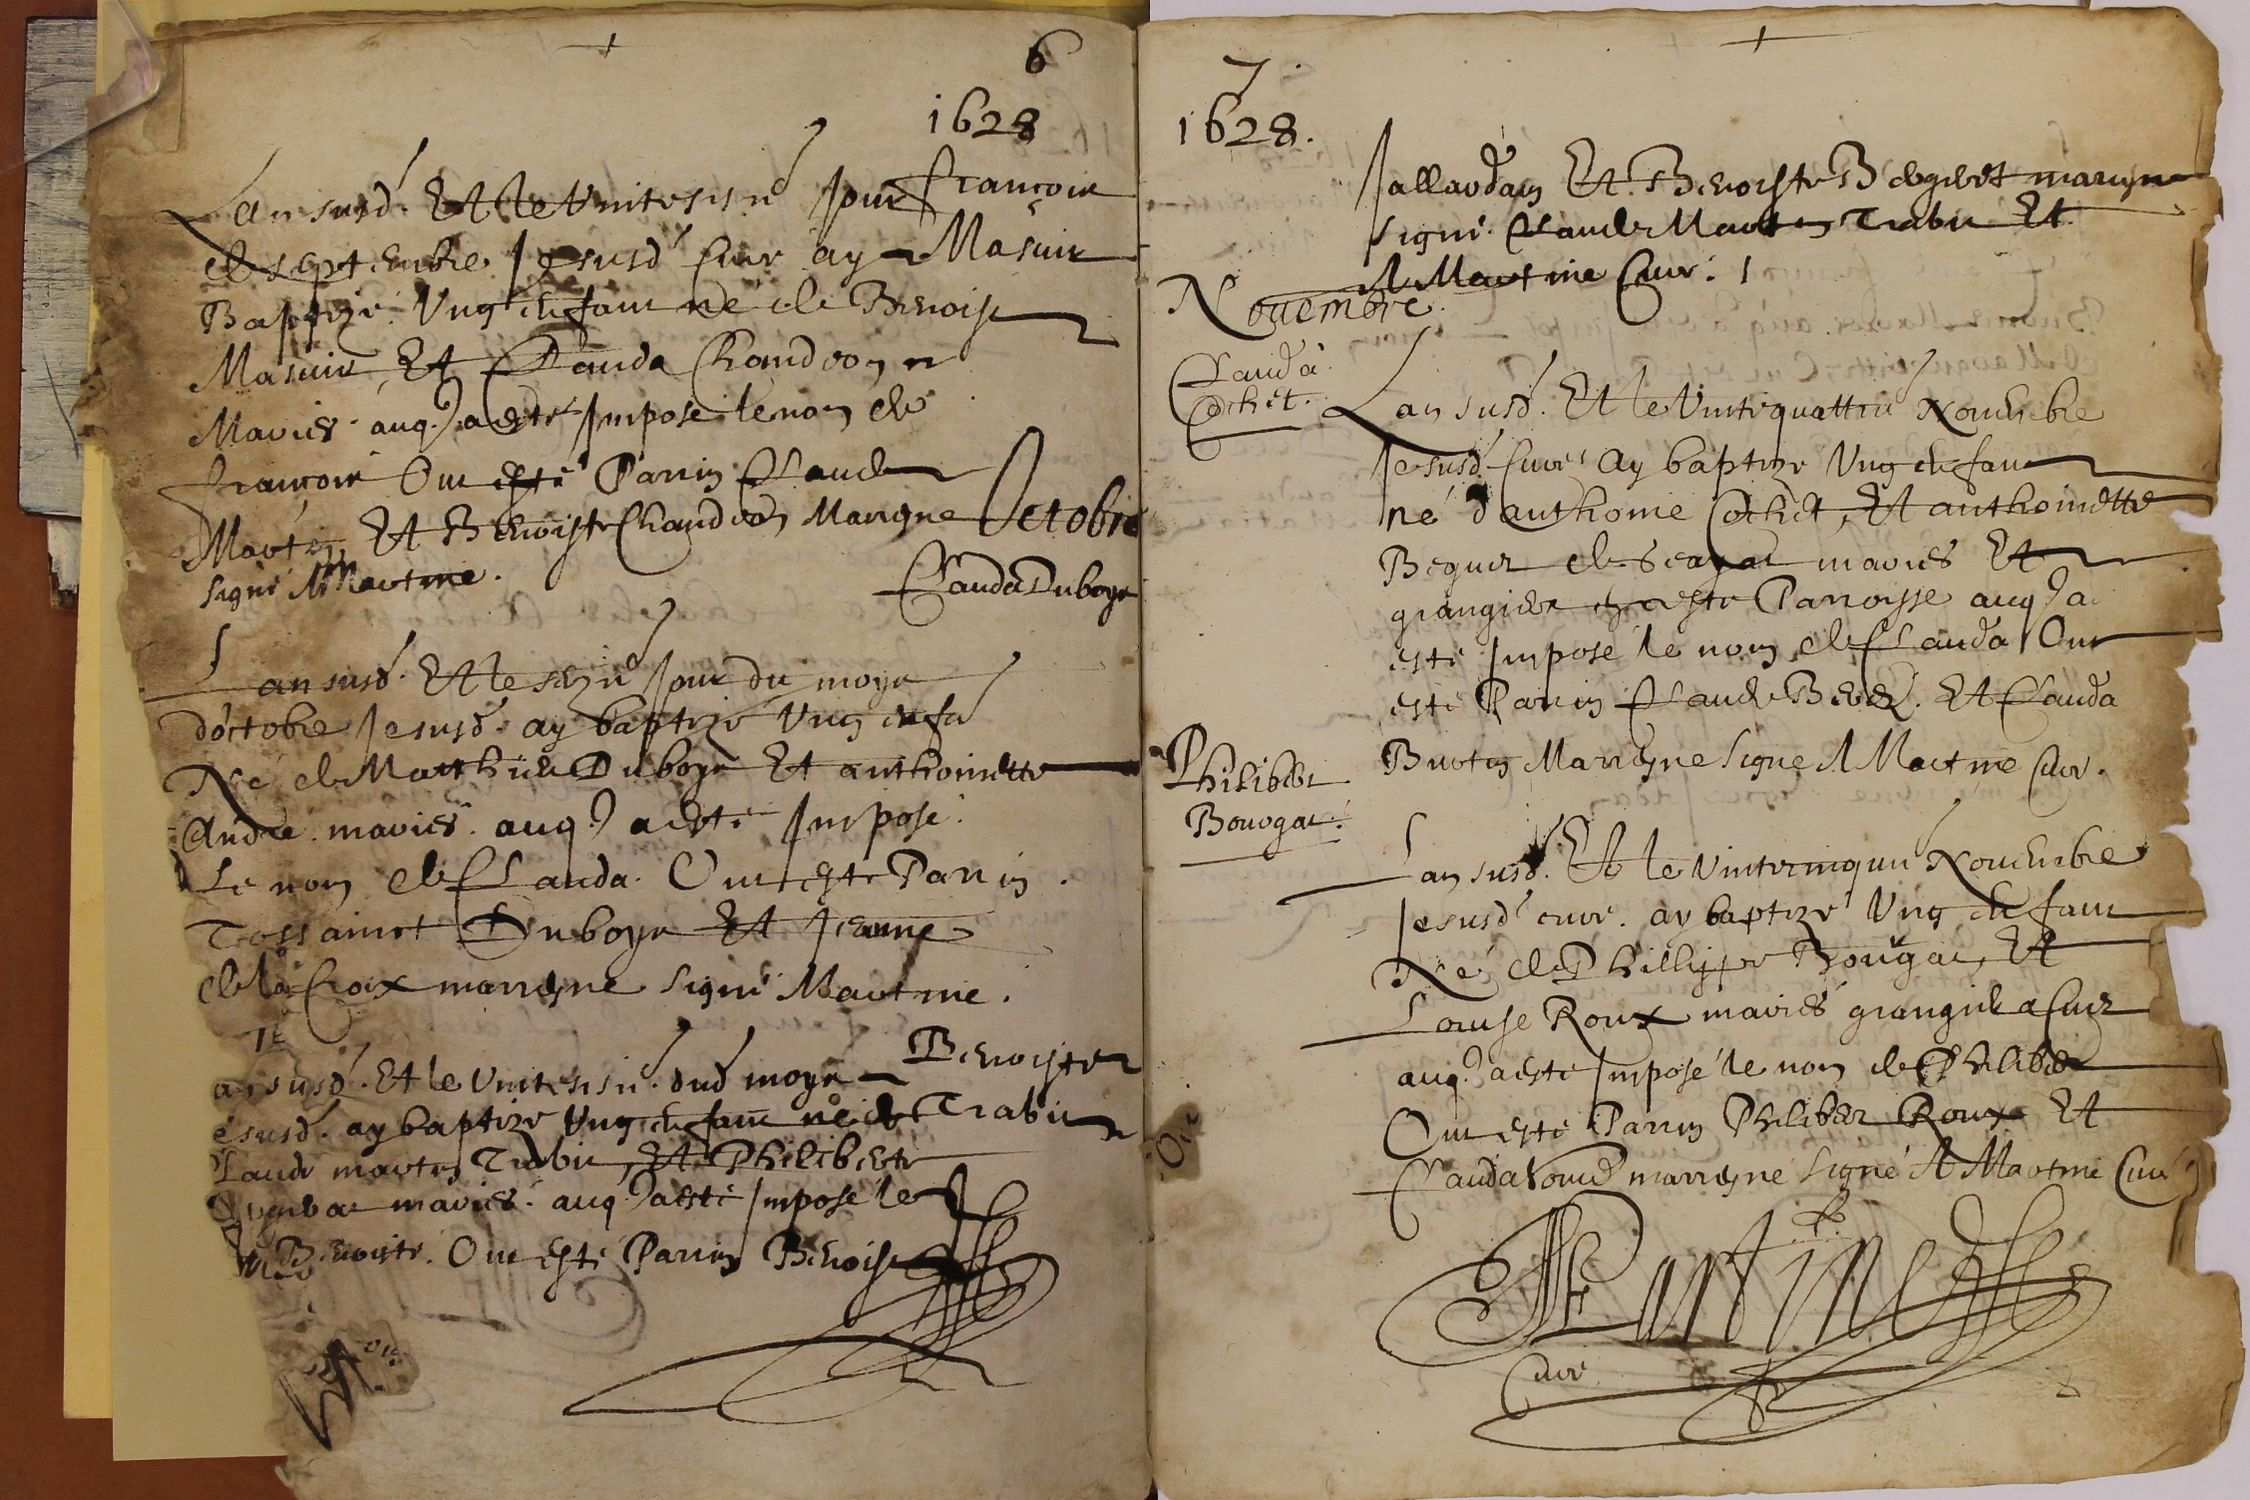 6
1628
Lan susd. Et le vintesine Jour
françoise
de septembre Je susd Cure ay
Masuir
Baptizé Ung enfant né de Benoist
Masuir Et Clauda Chandron
Mariés auql a esté Imposé le nom de
françoise Ont esté Parrin Claude
Martin Et Benoiste Chandron Marrigne
signé M Martine.
Octobre
Clauda Duboys
Lan susd. Et le Jour du moys
d'octobre Je susd. ay baptizé Ung enfa
Né de Matthieu Duboys Et anthoinette
André mariés auql a esté Imposé
Le nom de Clauda. Ont esté Parrin
Tossainct Duboys Et Jeanne
de la Croix marreyne signé Martine.
an susd. Et le dud moys
Benoiste
ésusd. ay baptizé Ung enfant né de
Trabu
laude martin Trabu, Et Philiberte
mariés. auql a esté Imposé le
Benoiste. Ont esté Parrin Benoist
7.
1628.
Jallardam Et. Benoiste marreyne
signé. Claude Martin Trabu Et
A Martine Cure. 1
Nouembre.
Clauda
Cochet.
Lan susd. Et le Vintequattre Nouembre
Je susd Cure ay baptizé Ung enfant
né d'anthoine Cochet, Et anthoinette
Beguer de mariés Et
grangiers en ceste Parroisse auql a
esté Imposé le nom de Clauda Ont
esté Parrin Claude Et Clauda
Marreyne signé A Martine Cure.
Philibert
Bourgat.
Lan susd. Et le Vintecinquie Nouembre
Je susd cure. ay baptizé Ung enfant
Né de Phillippe Bourgat, Et
Louise Roux mariés grangier a Cuiz
auql a esté Imposé le nom de Philibert
Ont esté Parrin Philibert Roux Et
Clauda marreyne signé A Martine Curé
Martine
Cure